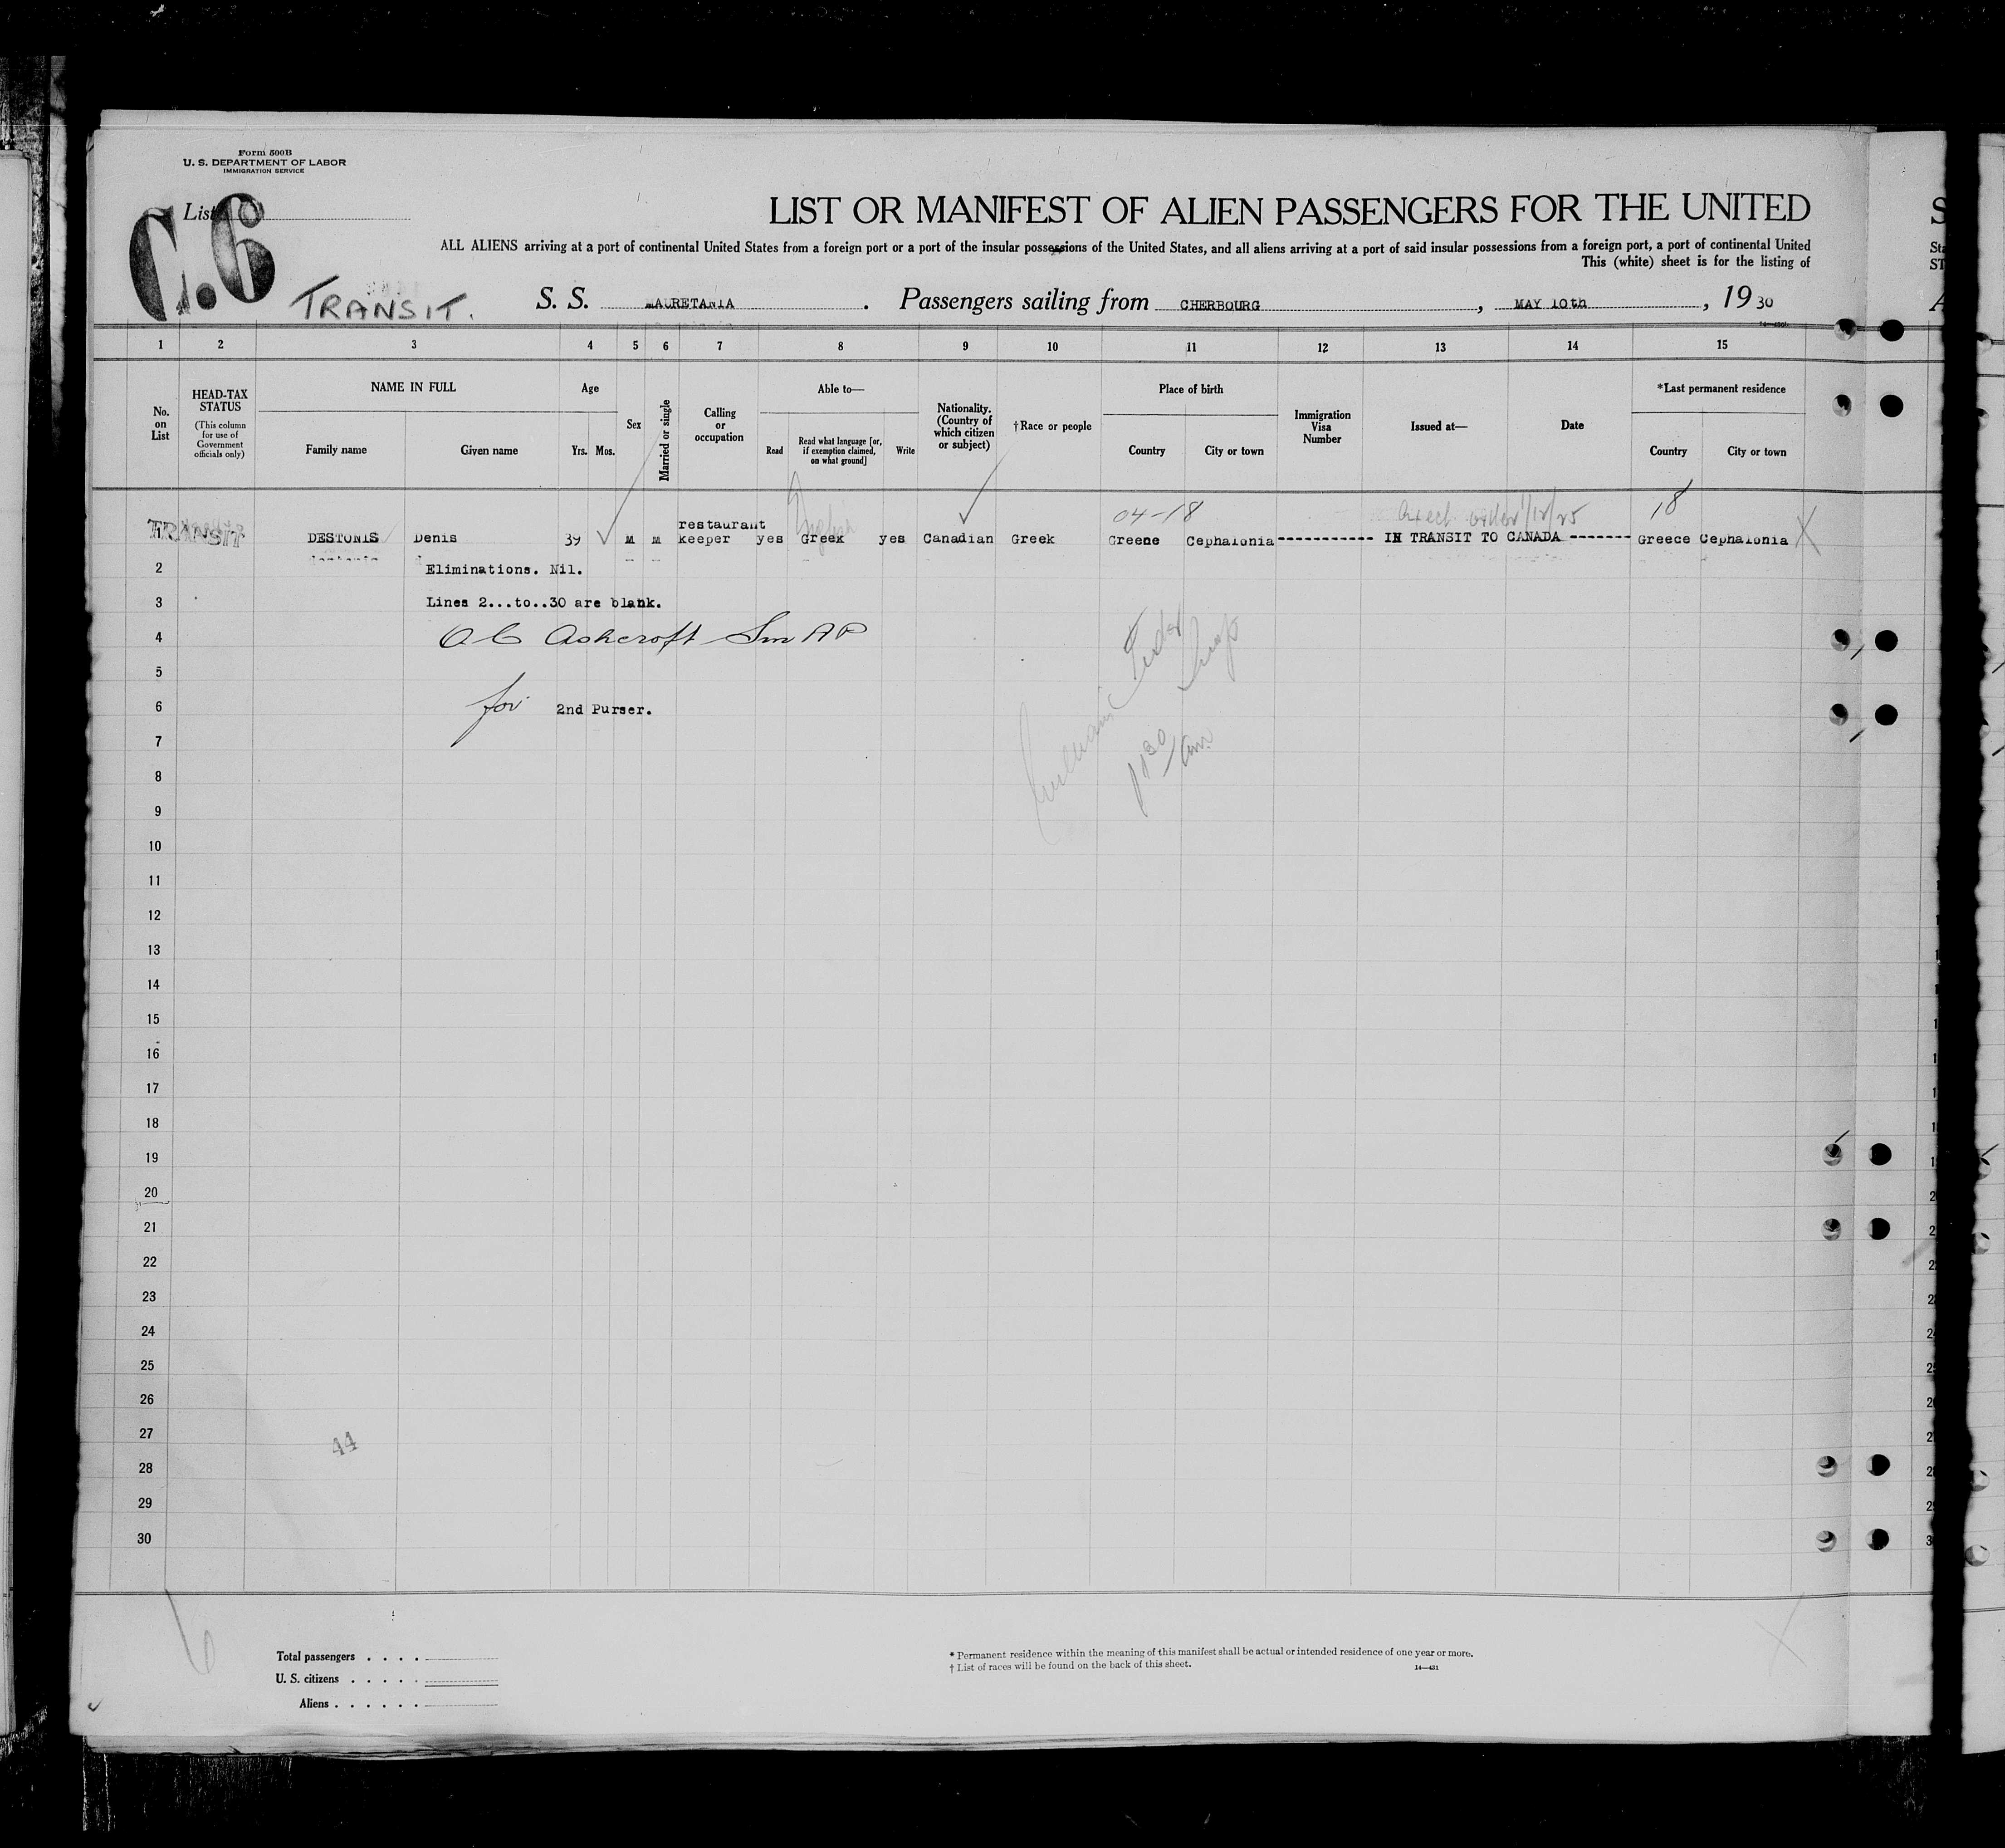 Form 500B
U. S. DEPARTMENT OF LABOR
IMMIGRATION SERVICE
List
C.6
TRANSIT.
LIST OR MANIFEST OF ALIEN PASSENGERS FOR THE UNITED
ALL ALIENS arriving at a port of continental United States from a foreign port or a port of the insular possessions of the United States, and all aliens arriving at a port of said insular possessions from a foreign port, a port of continental United
This (white) sheet is for the listing of
S. S. MAURETANIA. Passengers sailing from CHERBOURG, MAY 10th, 1930
1 2 3 4 5 6 7 8 9 10 11 12 13 14 15
No. on List
HEAD-TAX STATUS
(This column for use of Government officials only)
NAME IN FULL
Family name
Given name
Age
Yrs. Mos.
Sex
Married or single
Calling or occupation
Able to—
Read
Read what language [or, if exemption claimed, on what ground]
Write
Nationality. (Country of which citizen or subject)
†Race or people
Place of birth
Country
City or town
Immigration Visa Number
Issued at—
Date
*Last permanent residence
Country
City or town
English 04-18 18
TRANSIT DESTONIS Denis 39 M M restaurant keeper yes Greek yes Canadian Greek Greene Cephalonia ----------- IN TRANSIT TO CANADA ------- Greece Cephalonia X
2 Eliminations. Nil.
3 Lines 2...to..30 are blank.
4 Ashcroft
5
6 for 2nd Purser.
7
8
9
10
11
12
13
14
15
16
17
18
19
20
21
22
23
24
25
26
27
44
28
29
30
Total passengers . . . .
U. S. citizens . . . . .
Aliens . . . . . .
* Permanent residence within the meaning of this manifest shall be actual or intended residence of one year or more.
† List of races will be found on the back of this sheet.
14—431